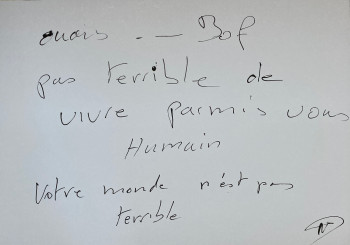 ouais .- Bof
pas terrible de
vivre parmis vous
Humain
Votre monde n'est pas
terrible